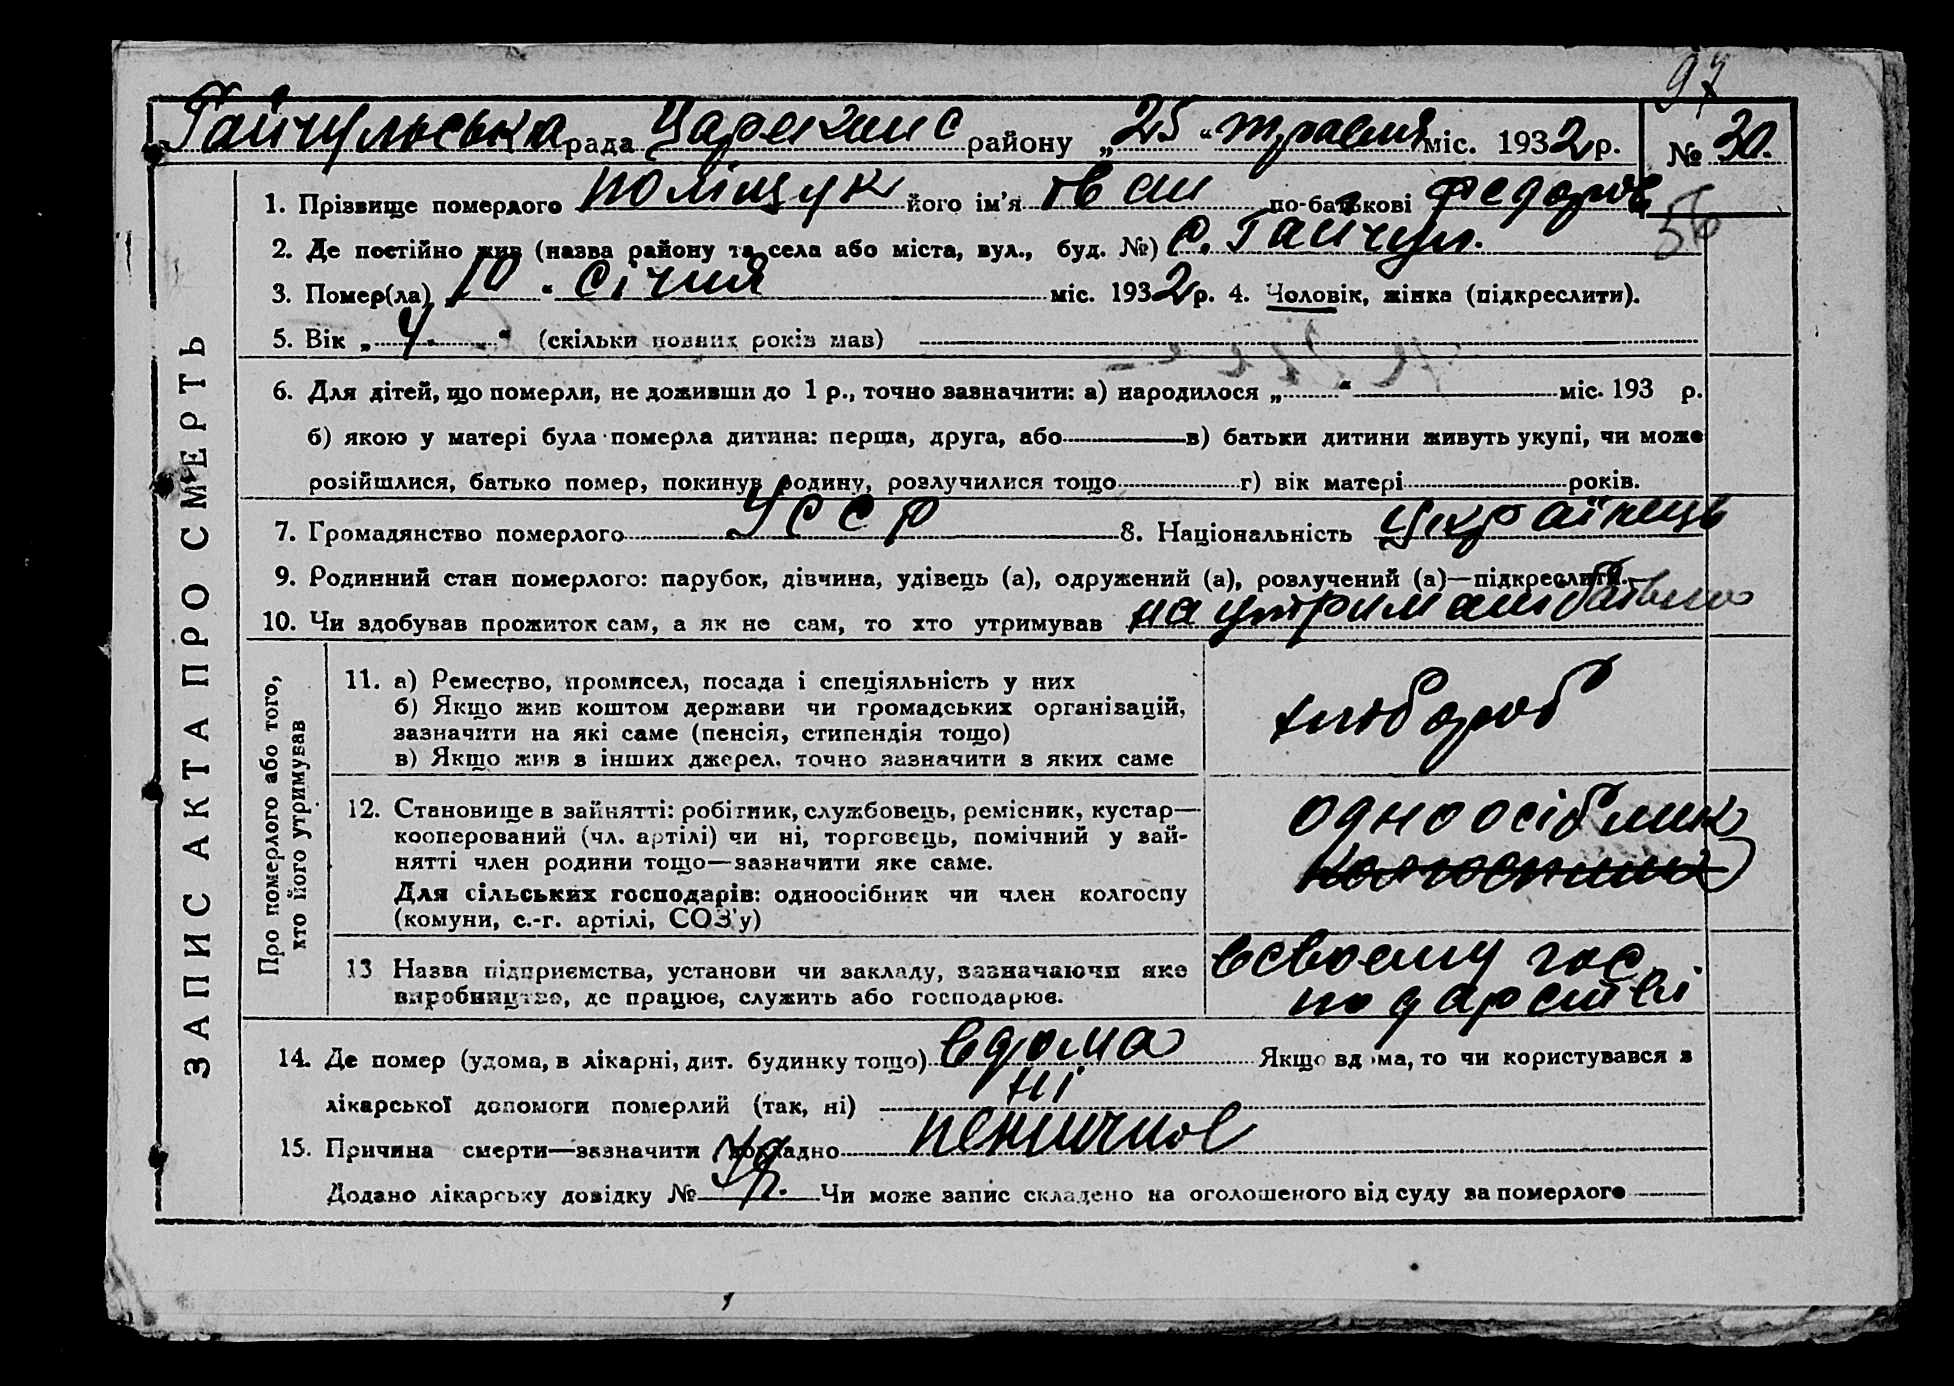 97
Гайчульська рада Царекон с району „25“ травня міс. 1932 р. № 30.
1. Прізвище померлого Поліщук його ім’я Іван по-батькові Федоров
56
2. Де постійно жив (назва району та села або міста, вул., буд. №) С. Гайчул.
3. Помер(ла) „10“ січня міс. 1932 р. 4. Чоловік, жінка (підкреслити).
5. Вік „4.“ (скільки повних років мав)
6. Для дітей, що померли, не доживши до 1 р., точно зазначити: а) народилося „ “ міс. 193 р.
б) якою у матері була померла дитина: перша, друга, або в) батьки дитини живуть укупі, чи може
розійшлися, батько помер, покинув родину, розлучилися тощо г) вік матері років.
7. Громадянство померлого УССР 8. Національність українець
9. Родинний стан померлого: парубок, дівчина, удівець (а), одружений (а), розлучений (а)—підкреслити.
10. Чи здобував прожиток сам, а як не сам, то хто утримував на утримані батьков
ЗАПИС АКТА ПРО СМЕРТЬ
Про померлого або того,
хто його утримував
11. а) Ремество, промисел, посада і спеціяльність у них
б) Якщо жив коштом держави чи громадських організацій,
зазначити на які саме (пенсія, стипендія тощо)
в) Якщо жив з інших джерел, точно зазначити з яких саме
хлібороб
12. Становище в зайнятті: робітник, службовець, ремісник, кустар—
кооперований (чл. артілі) чи ні, торговець, помічний у зай-
нятті член родини тощо—зазначити яке саме.
Для сільських господарів: одноосібник чи член колгоспу
(комуни, с.-г. артілі, СОЗ’у)
одноосібник
13. Назва підприємства, установи чи закладу, зазначаючи яке
виробництво, де працює, служить або господарює.
всвоєму гос
подарстві
14. Де помер (удома, в лікарні, дит. будинку тощо) вдома Якщо вдома, то чи користувався з
лікарської допомоги померлий (так, ні) ні
15. Причина смерти—зазначити докладно
Додано лікарську довідку № Чи може запис складено на оголошеного від суду за померлого